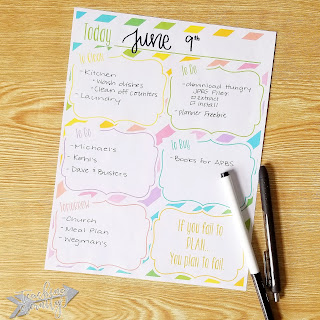 Today June 9th
To Clean
- Kitchen
- Wash dishes
- Clean off counters
- Laundry
To Do
- download Hungry
JPEG Files
extract
install
- Planner Freebie
To Go
- Michaels
- Kohl's
- Dave & Busters
To Buy
- Books for APBS
Tomorrow
- Church
- Meal Plan
- Wegman's
IF you fail to
PLAN...
You plan to fail